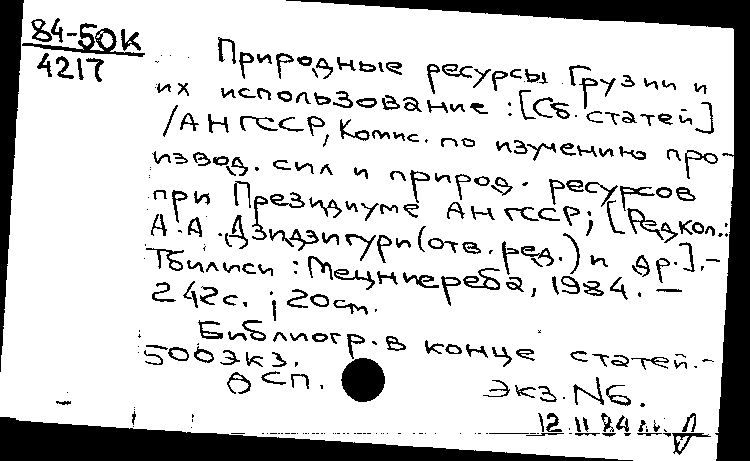 84-50К
4217
Природные ресурсы Грузии и
их использование : [Сб. статей]
/АН ГССР, Комис. по изучению про-
извод. сил и природ. ресурсов
при Президиуме АН ГССР; [Редкол.:
А.А. Дзидзигури (отв. ред.) и др.].-
Тбилиси : Мецниереба, 1984. —
242с. ; 20см.
Библиогр. в конце статей.-
500экз.
ОСП. экз. №6.
12 11 84